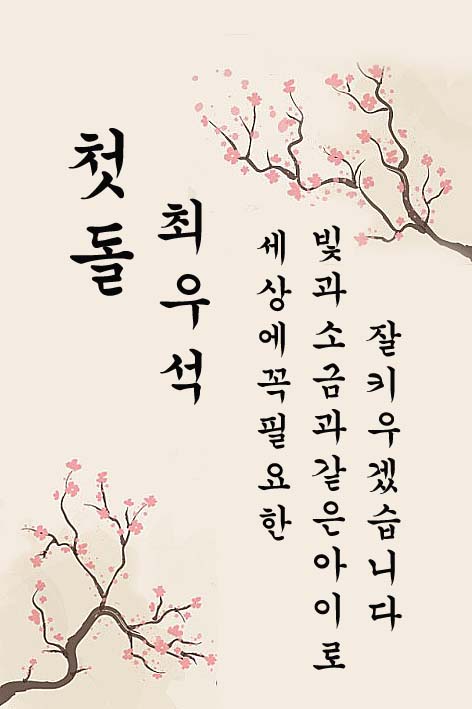 첫돌
최우석
세상에꼭필요한
빛과소금과같은아이로
잘키우겠습니다